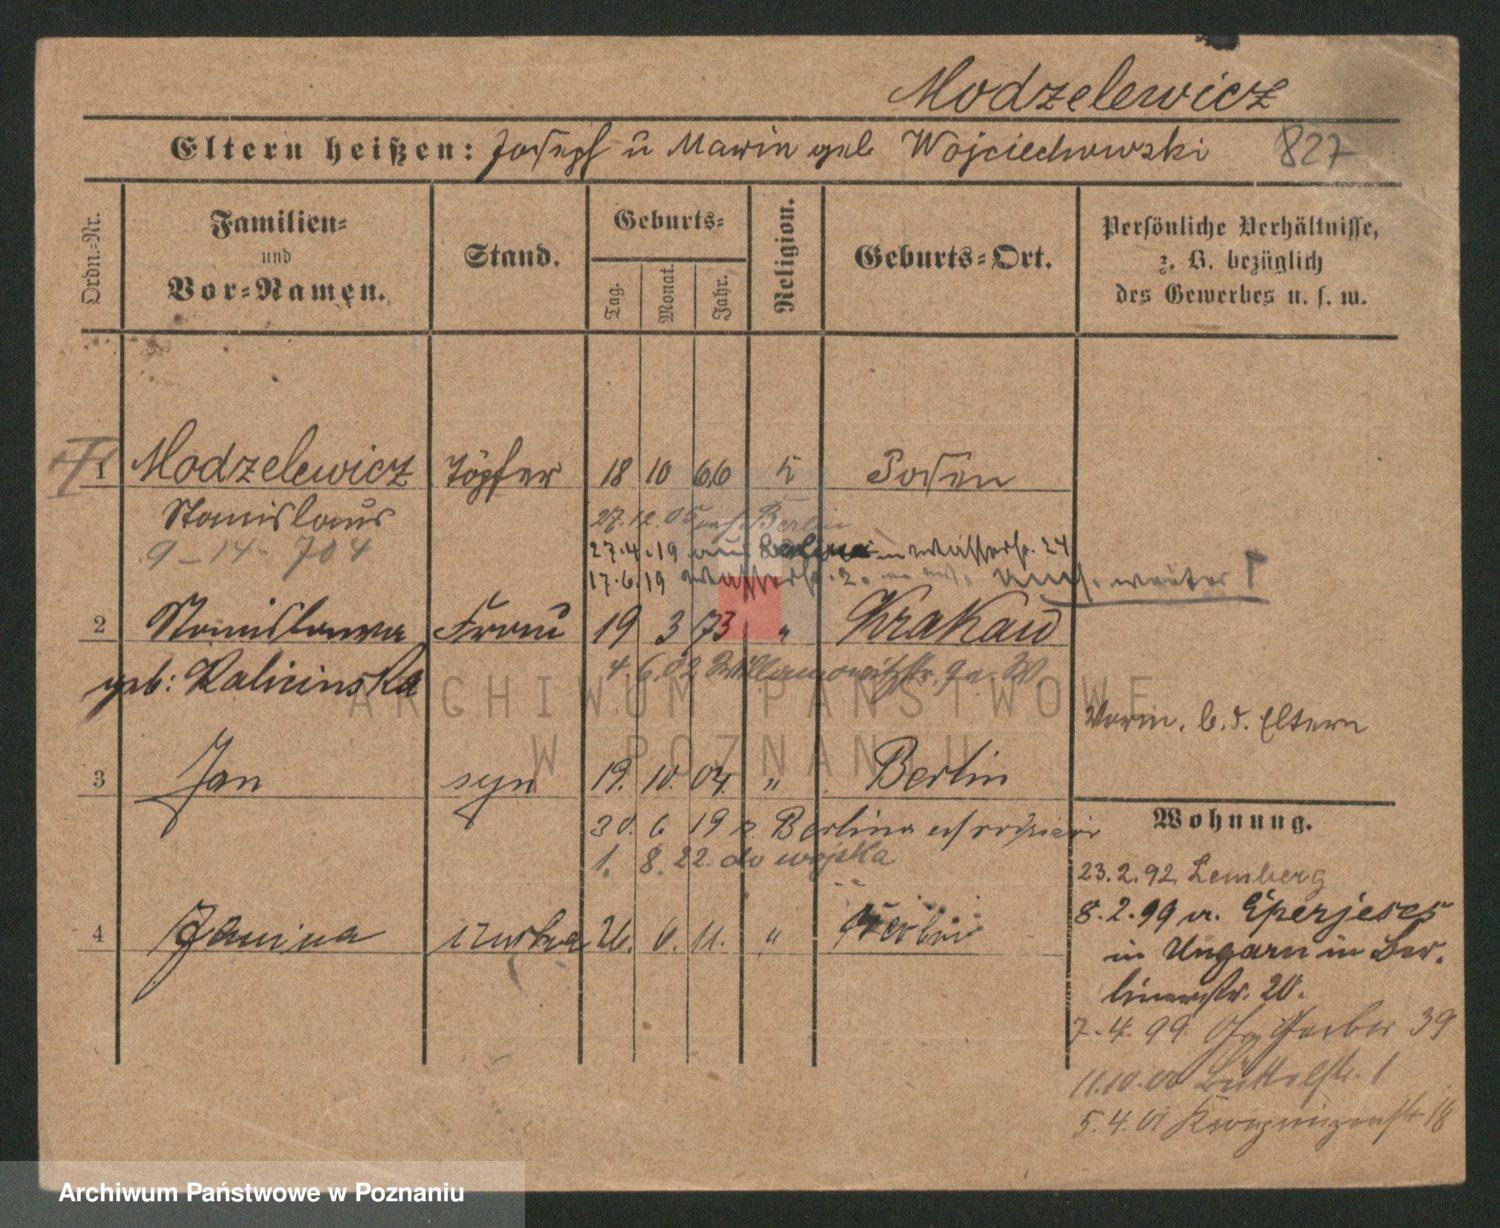 Modzelewicz
Eltern heißen: Josef u Marie geb Wojciechowski 827
Ordn.-Nr.
Familien-
und
Vor-Namen.
Stand.
Geburts-
Tag.
Monat.
Jahr.
Religion.
Geburts-Ort.
Persönliche Verhältnisse,
z. B. bezüglich
des Gewerbes u. s. w.
1 Modzelewicz Töpfer 18 10 66 k Posen
Stanislaus
9-14-704
27.12.05 Berlin
27.4.19 aus Berlin Wasserstr. 24
17.6.19 Wasserstr. 2.
2 Stanislawa Frau 19 3 73 " Krakau
geb: Kalicinska
4.6.02 Willamowitzstr. 9a. W
Vorm. b. d. Eltern
3 Jan syn 19. 10. 04. " Berlin
30. 6 19 z Berlina
1. 8. 22. do wojska
4 Janina córka 26. 6. 11. " Berlin
Wohnung.
23.2.92 Lemberg
8.2.99 v. Eperjeses
in Ungarn in Ber-
linerstr. 20.
7.4.99. Gr. Gerber 39
11.10.00 Büttelstr. 1
5.4.01 18
ARCHIWUM PAŃSTWOWE
W POZNANIU
Archiwum Państwowe w Poznaniu